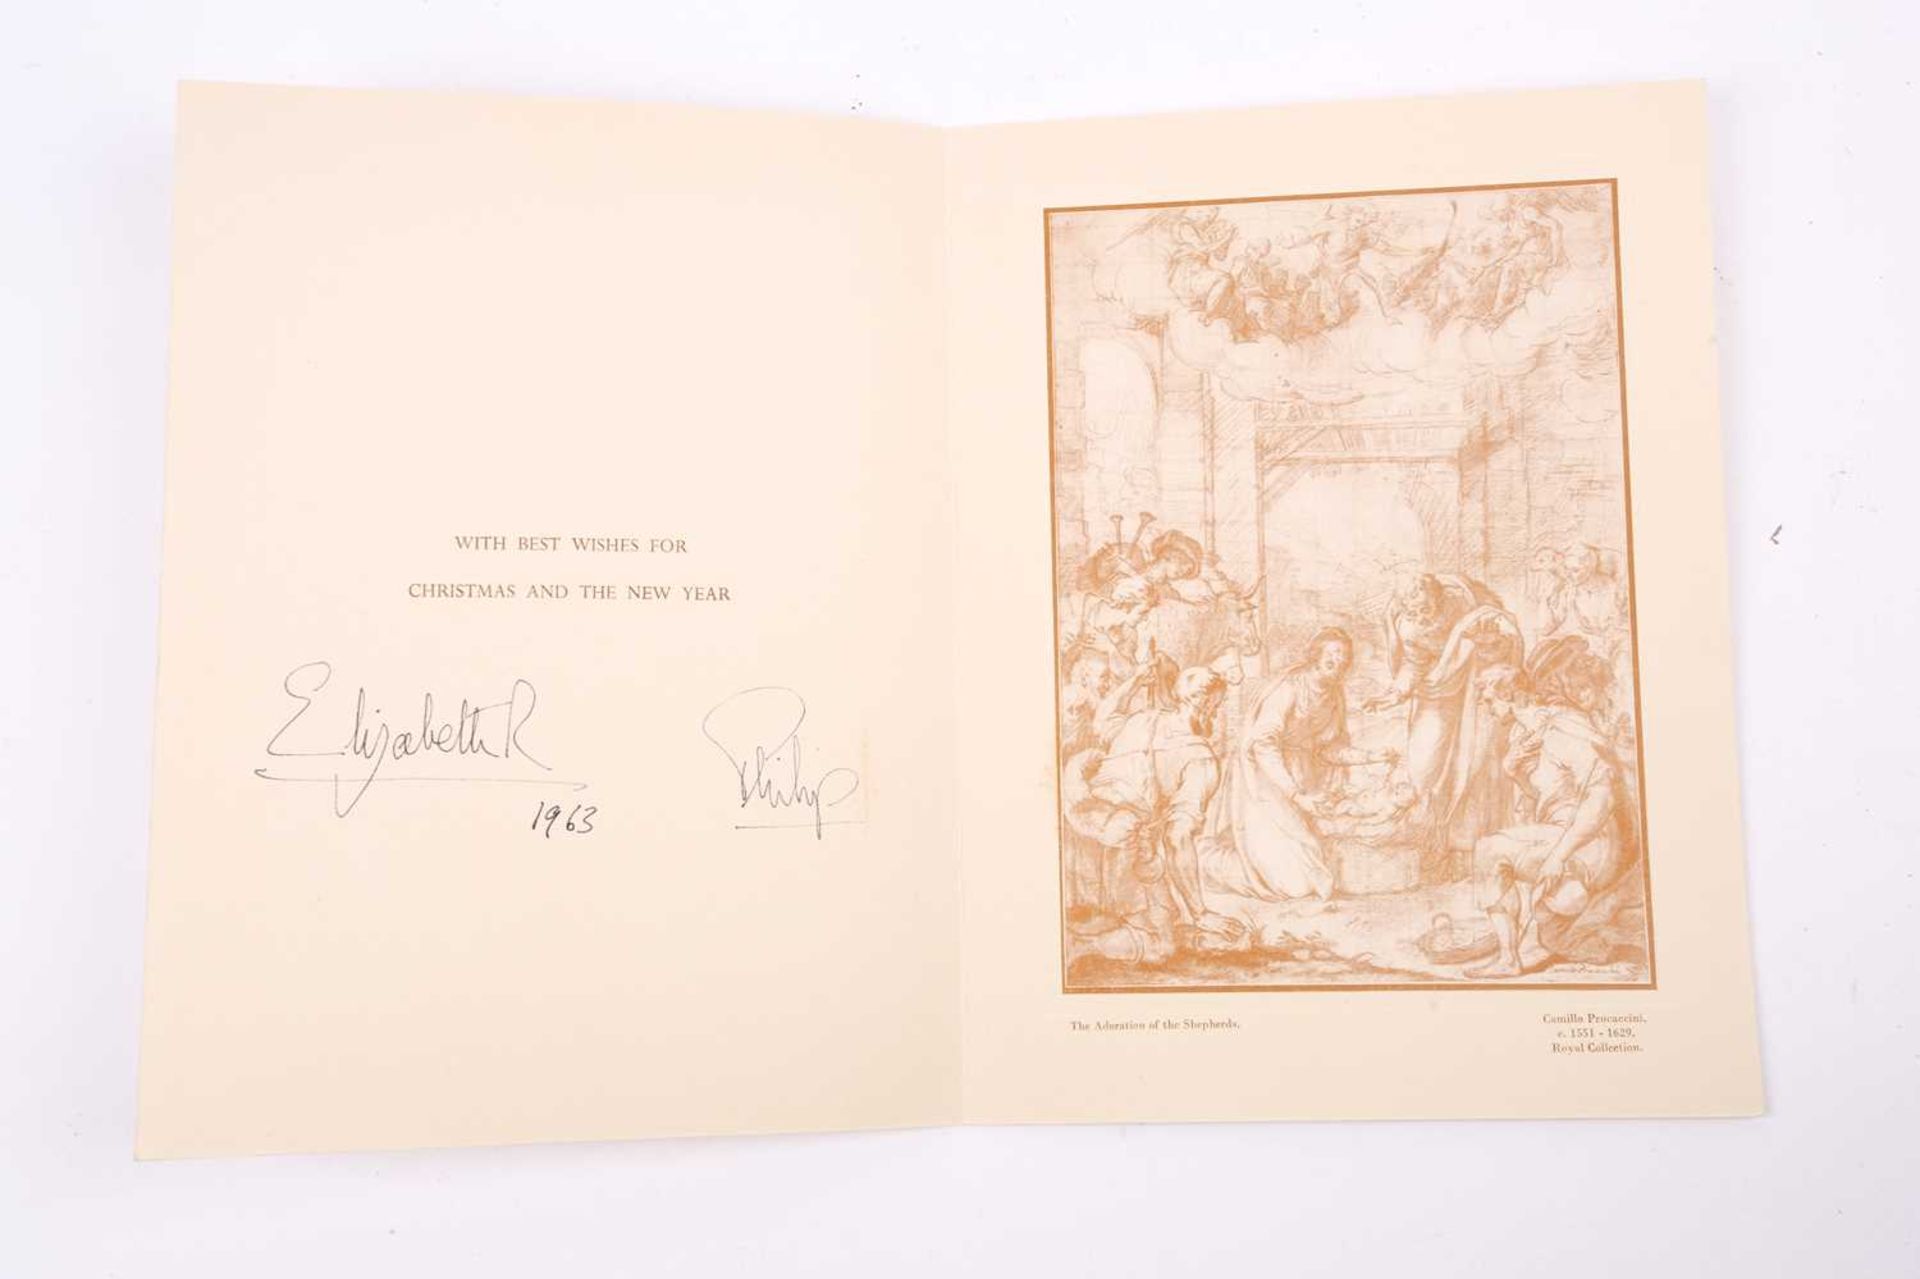 WITH BEST WISHES FOR
CHRISTMAS AND THE NEW YEAR
Elizabeth R
1963
Philip
The Adoration of the Shepherds.
Camillo Procaccini.
c. 1551 - 1629.
Royal Collection.